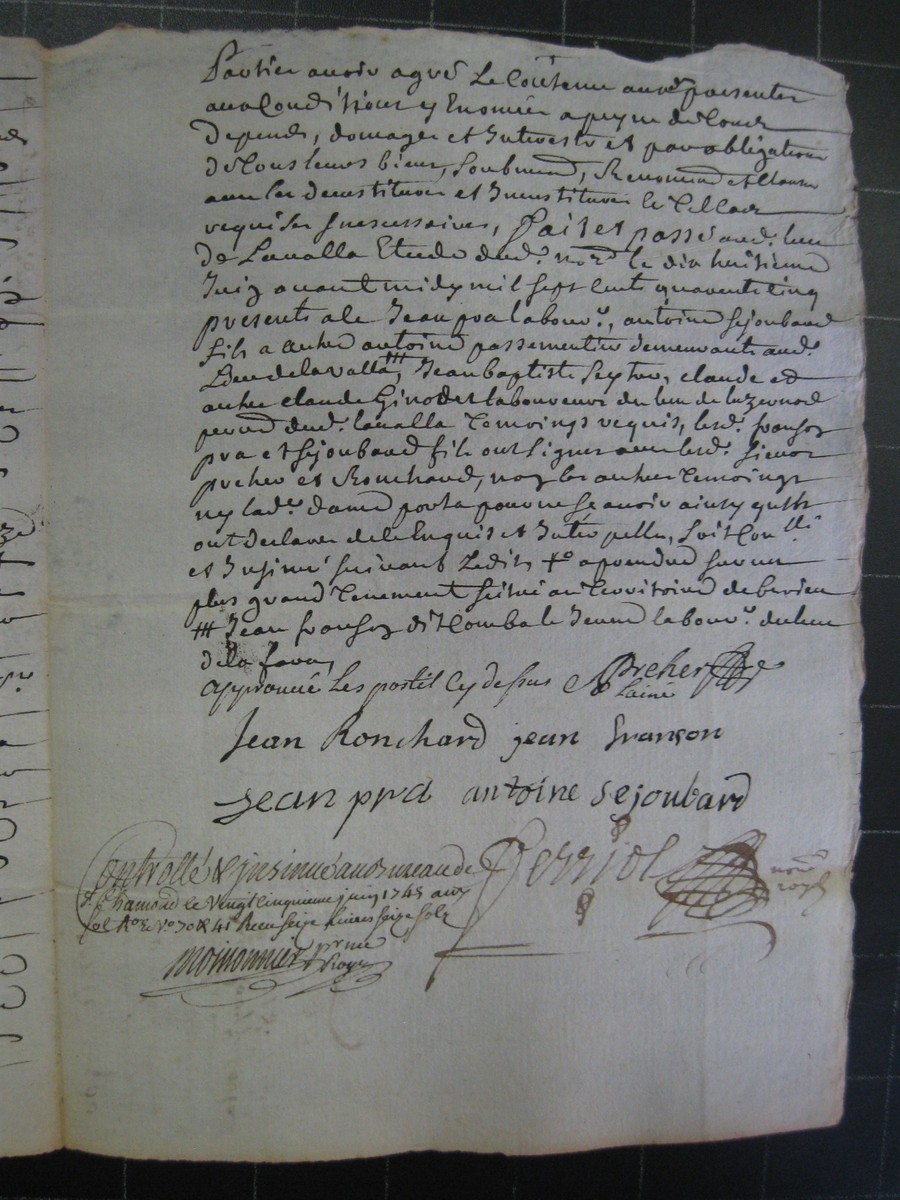 Parties avoir agreé Le Contenu aux presentes
aux Conditions y Enoncées a peyne de tous
Depends, domages et Interests et par obligation
De tous leurs biens, Soubmis, Renoncé et Clauses
requises necessaires, fait et passé aud. lieu
De Lavalla Etude dud. no.re le dix huitieme
Juin avant midy mil sept Cents quarente Cinq
presents a Ce Jean pra labour.r, antoine Sejoubard
fils a autre antoine passementier demeurants aud.
Lieu de la valla ⧻, Jean baptiste Seytre, claude et
autre claude Ginodet laboureurs du lieu de luzernod
perroisse dud. lavalla temoings requis, lesd. franson
pra et Sejoubard fils ont signes avec lesd. sieurs
precher et Ronchard, non les autres temoings
ny lad. dame porta pour ne sçavoir ainsy quils
ont declare de ce Enquis et Interpellés, Soit Con.llé
et Insinué suivant Ledit,
plus grand tenement scitué au territoire de
⧻ Jean franson dit Combal le Jeune labour.r du lieu
De la fara,
approuvé Les postil Cy dessus Precher
Laine
Jean Ronchard jean franson
Jean pra antoine Sejoubard
Perriol no.re
royal
Controllé & jnsinué au bureau de
St. Chamond le vingt cinquieme juin 1745 aux
fol. R.o & V.o 70 & 41 Receu seize livres seize sols